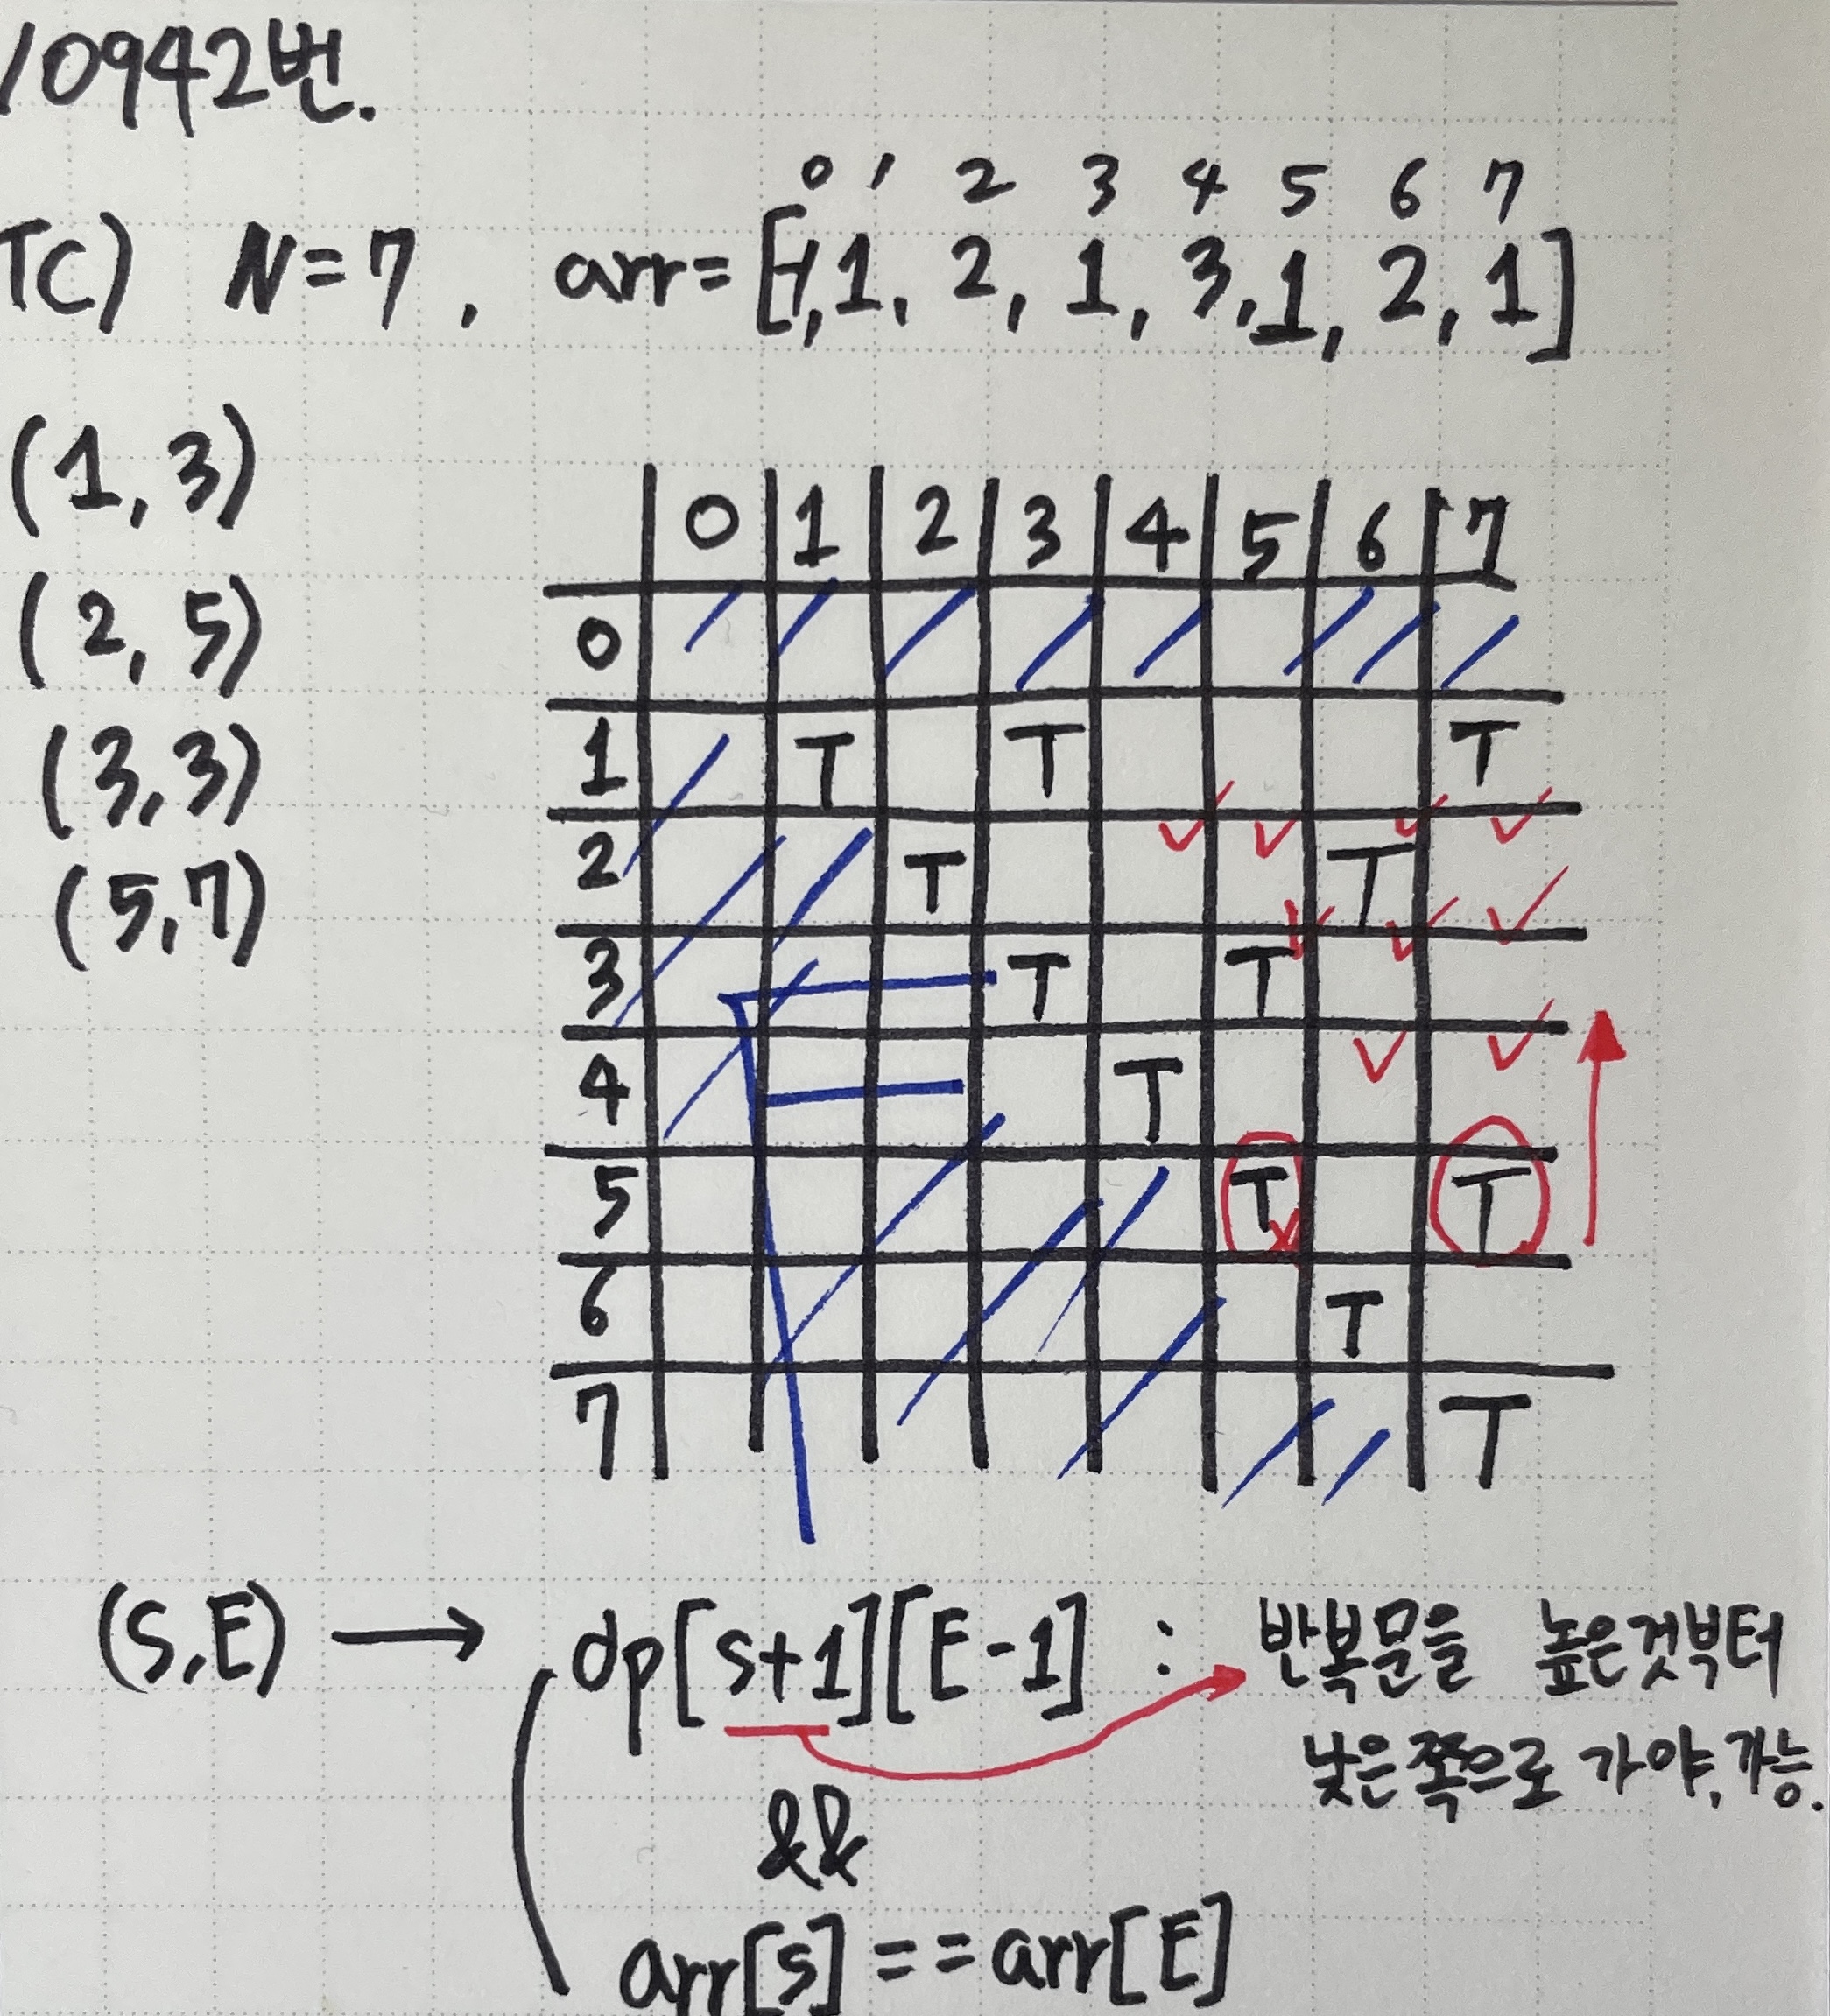 10942번.
0 1 2 3 4 5 6 7
TC) N=7, arr=[-1,1,2,1,3,1,2,1]
(1,3)
(2,5)
(3,3)
(5,7)
0 1 2 3 4 5 6 7
0
1 T T T
2 T T
3 T T
4 T
5 T T
6 T
7 T
(S,E) → dp[S+1][E-1] : 반복문을 높은것부터
낮은쪽으로 가야,가능.
&&
arr[S]==arr[E]